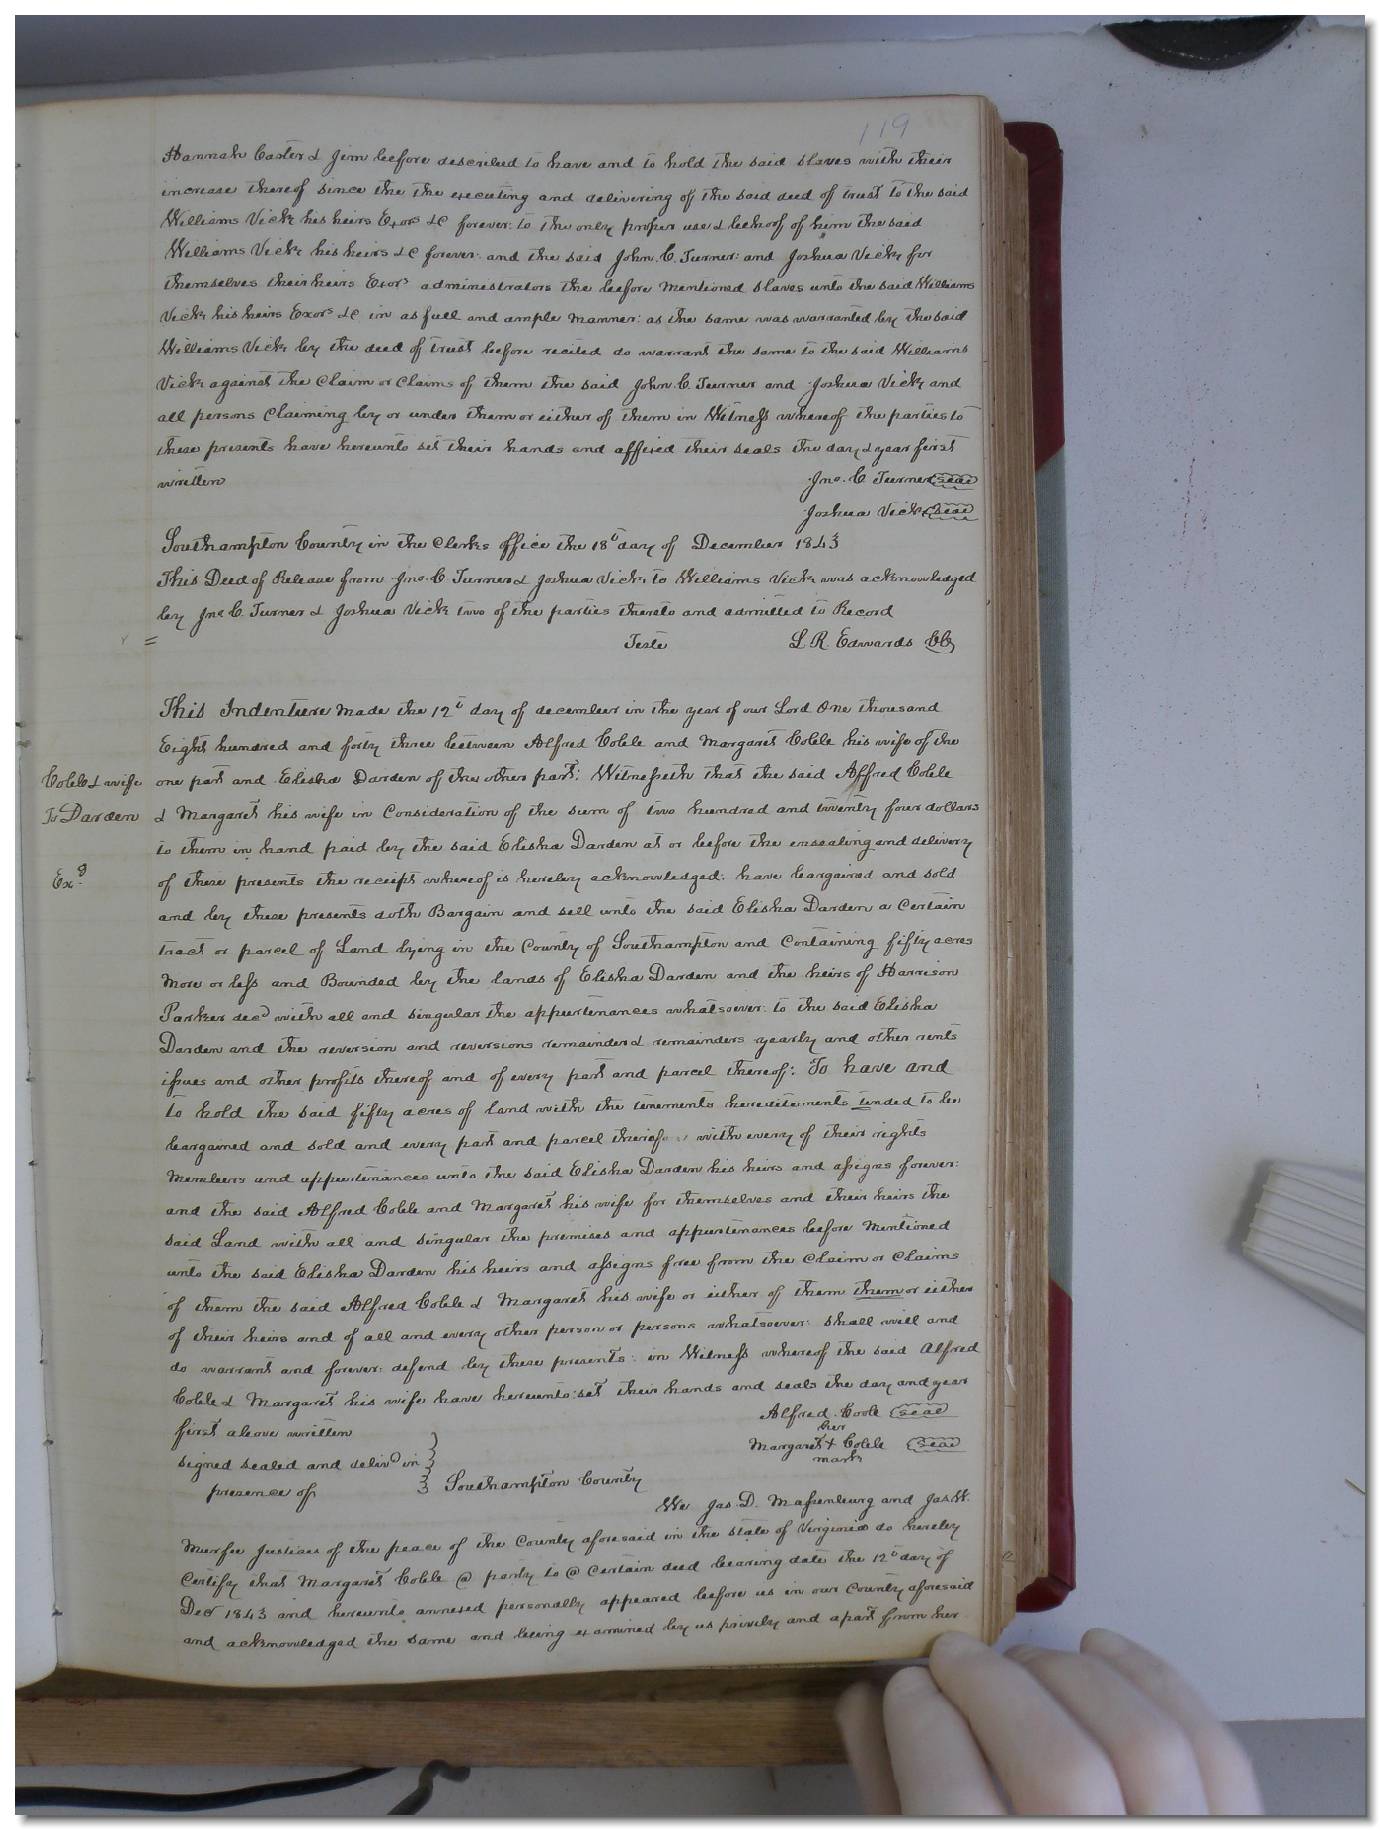 119
Hannah Caster & Jim before described to have and to hold the said slaves with their
increase thereof since the the executing and delivering of the said deed of trust to the said
Williams Vick his heirs Exors &C forever: to the only proper use & behoof of him the said
Williams Vick his heirs &C forever: and the said John. C. Turner: and Joshua Vick for
themselves their heirs Exors administrators the before mentioned slaves unto the said Williams
Vick his heirs Exors &C in as full and ample manner: as the same was warranted by the said
Williams Vick by the deed of trust before recited do warrant the same to the said Williams
Vick against the Claim or Claims of them the said John. C. Turner and Joshua Vick and
all persons Claiming by or under them or either of them in Witness whereof the parties to
these presents have hereunto set their hands and affixed their seals the day & year first
written
Jno. C Turner seal
Joshua Vick seal
Southampton County in the Clerks office the 18t day of December 1843
This Deed of Release from Jno. C. Turner & Joshua Vick to Williams Vick was acknowledged
by Jno C. Turner & Joshua Vick two of the parties thereto and admitted to Record
Teste L R. Edwards CC
This Indenture made the 12t day of december in the year of our Lord One thousand
Eight hundred and forty three between Alfred Coble and Margaret Coble his wife of the
Coble & wife
To Darden
Exd
one part and Elisha Darden of the other part: Witnesseth that the said Alfred Coble
& Margaret his wife in Consideration of the sum of two hundred and twenty four dollars
to them in hand paid by the said Elisha Darden at or before the ensealing and delivery
of these presents the receipt whereof is hereby acknowledged: have bargained and sold
and by these presents doth Bargain and sell unto the said Elisha Darden a Certain
tract or parcel of Land lying in the County of Southampton and Containing fifty acres
more or less and Bounded by the lands of Elisha Darden and the heirs of Harrison
Parker decd with all and singular the appurtenances whatsoever: to the said Elisha
Darden and the reversion and reversions remainder & remainders yearly and other rents
issues and other profits thereof and of every part and parcel thereof: To have and
to hold the said fifty acres of land with the tenements hereditements tended to be
bargained and sold and every part and parcel thereof with every of their rights
members and appurtenances unto the said Elisha Darden his heirs and assigns forever:
and the said Alfred Coble and Margaret his wife for themselves and their heirs the
said Land with all and singular the premises and appurtenances before mentioned
unto the said Elisha Darden his heirs and assigns free from the Claim or Claims
of them the said Alfred Coble & Margaret his wife or either of them them or either
of their heirs and of all and every other person or persons whatsoever: shall will and
do warrant and forever: defend by these presents: in Witness whereof the said Alfred
Coble & Margaret his wife have hereunto: set their hands and seals the day and year
first above written
Alfred. Coble seal
her
Margaret + Coble seal
mark
signed sealed and delivd in
presence of
Southampton County
We Jas. D. Massenburg and Jas. W.
Murfee Justices of the peace of the County aforesaid in the state of Virginia do hereby
Certify that Margaret Coble @ party to @ Certain deed bearing date the 12t day of
Decr 1843 and hereunto annexed personally appeared before us in our County aforesaid
and acknowledged the same and being examined by us privily and apart from her